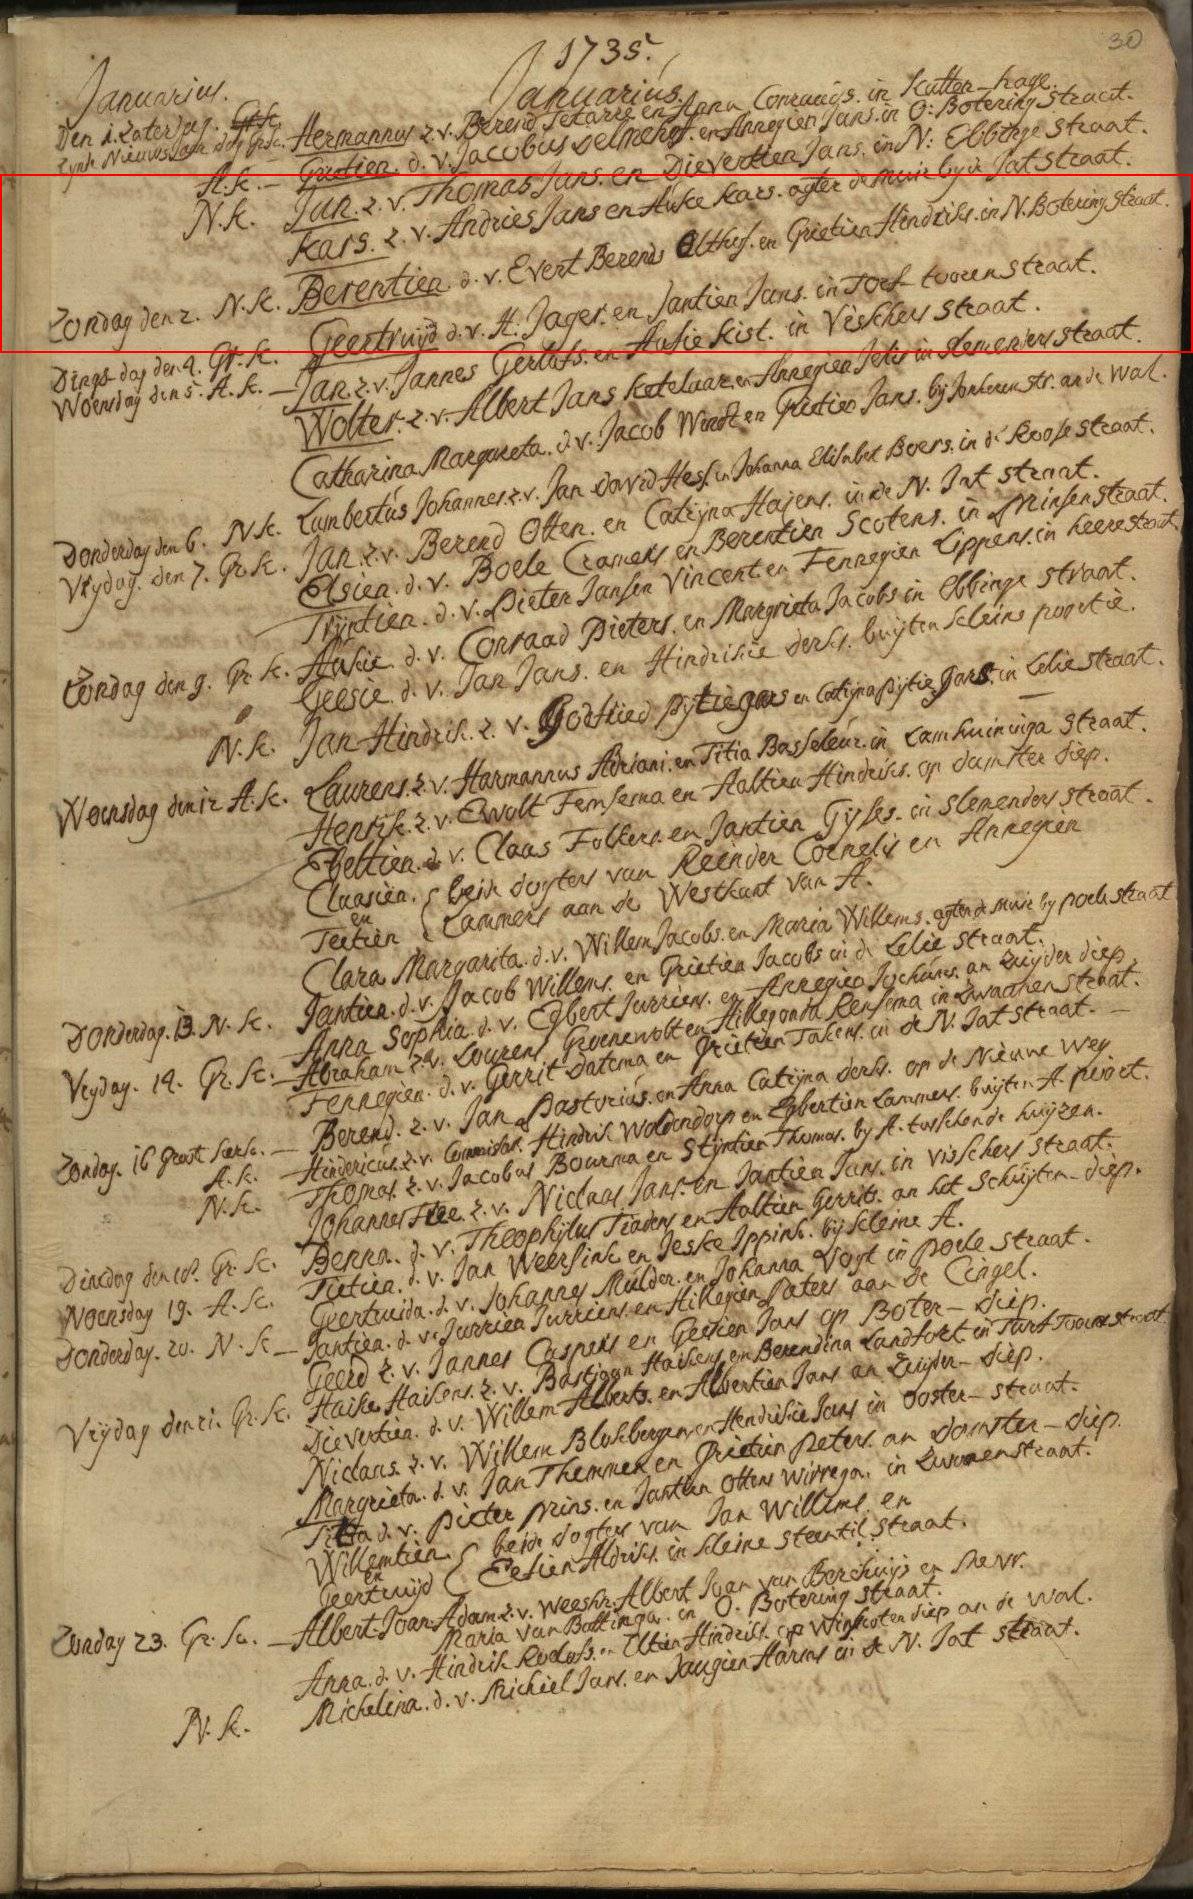 30
1735.
Januarius. Januarius.
Den 1. Zaterdag. Gr.k. Hermannus z. v. Berend Tetarre en Anna Conraads. in Katten-hage.
zynde Nieuws Jaar dag Grietien. d. v. Jacobus Delmenhof. en Annegien Jans. in O: Botering straat.
A. k. — Jan. z. v. Thomas Jans. en Dievertien Jans. in N: Ebbinge straat.
N. k. Kars. z. v. Andries Jans en Auke Kars. agter de muir by de Jatstraat.
Zondag den 2. N. k. Berentien. d. v. Evert Berends Olthof. en Grietien Hindriks. in N. Botering straat.
Geertruijd d. v. H. Jager. en Jantien Jans. in Torf-toorenstraat.
Dingsdag den 4. Gr. k. Jan. z. v. Jannes Gerlofs. en Aafie Kist. in Visschers straat.
Woensdag den 5. A. k. — Wolter. z. v. Albert Jans Ketelaar. en Annegien Jelis in slemenders straat.
Catharina Margareta. d. v. Jacob Wendt en Grietien Jans. bij Jonkeren str. an de wal.
Donderdag den 6. N. k. Lambertus Johannes. z. v. Jan David Hess. en Johanna Elisabet Boers. in de Roose straat.
Vrydag. den 7. Gr. k. Jan. z. v. Berend Otten. en Catrijna Hajens. in de N. Jat straat.
Elsien. d. v. Boele Cramers en Berentien Scotens. in Prinsenstraat.
Trijntien. d. v. Pieter Jansen Vincent. en Fennegien Lippens. in heerestraat
Zondag den 9. Gr. k. Aukie d. v. Conraad Pieters. en Margrieta Jacobs in Ebbinge straat.
Geesie. d. v. Jan Jans. en Hindrikie derks. buijten kleine poortie.
N. k. Jan Hindrik. z. v. Godtlied en Catrijna Pijtie Jans. in Lelie straat.
Woensdag den 12 A. k. Laurens. z. v. Harmannus Adriani. en Titia Basseleur. in Lamhuininga straat.
Henrik. z. v. Ewolt Femsema en Aaltien Hindriks. op damster diep.
Ebeltien. d. v. Claas Folkers. en Jantien Gijses. in slemenders straat.
Claasien. { beide dogters van Reinder Cornelis en Annegien
en
Teetien { Lammers aan de Westkant van A.
Clara Margarita. d. v. Willem Jacobs. en Maria Willems. agter de Muir by poelestraat
Donderdag. 13. N. k. Jantien. d. v. Jacob Willems. en Grietien Jacobs in de Lelie straat.
Anna Sophia. d. v. Egbert Jurriens. en Annegien Jochims. an Zuyder diep.
Vrydag. 14. Gr. k. — Abraham z. v. Lourens Groenewolt en Hillegonda Rensema in Zwaanen straat.
Fennegien. d. v. Gerrit Datema en Grietien Takens. in de N. Jat straat. —
Berend. z. v. Jan Pastorius. en Anna Catrijna derks. op de Nieuwe weg
Zondag. 16 Groot kerk. — Hindericus. z. v. Commissar. Hindrik Woldendorp en Egbertien Lammers. buijten A. poort.
A. k. Thomas. z. v. Jacobus Bourma en Stijntien Thomas. by A. tusschen de huijzen.
N. k. Johannes z. v. Niclaas Jans. en Jantien Jans. in visschers straat.
Dinxdag den 18. Gr. k. Benna. d. v. Theophylus Tiadens en Aaltien Gerrits. an het Schuyten-diep.
Woensdag 19. A. k. Tietien. d. v. Jan Weersink en Jeske Ippink. bij kleine A.
Geertruida. d. v. Johannes Mulder. en Johanna Vogt in poele straat.
Donderdag. 20. N. k — Jantien. d. v. Jurrien Jurriens. en Hillegien Peters aan de Cingel.
Geerd z. v. Jannes Caspers en Geesien Jans op Boter-diep.
Vrijdag den 21. Gr. k. Haike Haikens. z. v. Bastjaan Haikens en Berendina Landfort in Turftoorenstraat
Dievertien. d. v. Willem Alberts. en Albertien Jans an Zuijder-diep.
Niclaas. z. v. Willem Blokbergen en Hendrikie Jans in Ooster-straat.
Margrieta. d. v. Jan Themmen en Grietien Peters. an Damster-diep.
Titia d. v. Pieter Prins. en Jantien Ottens Wirrega. in Zwanenstraat.
Willemtien. { beide dogters van Jan Willems. en
en
Geertruijd { Eetien Aldriks. in kleine steentil straat.
Zondag 23. Gr. k. — Albert Joan Adam z. v. Weeshr. Albert Joan van Berchuijs en Mevr.
Maria Van Bottinga. in O. Botering straat.
Anna. d. v. Hindrik Roelofs. en Eltien Hindriks. op Winschoten diep an de wal.
N. k. Michelina. d. v. Michiel Jans. en Jaugien Harms in de N. Jat straat.